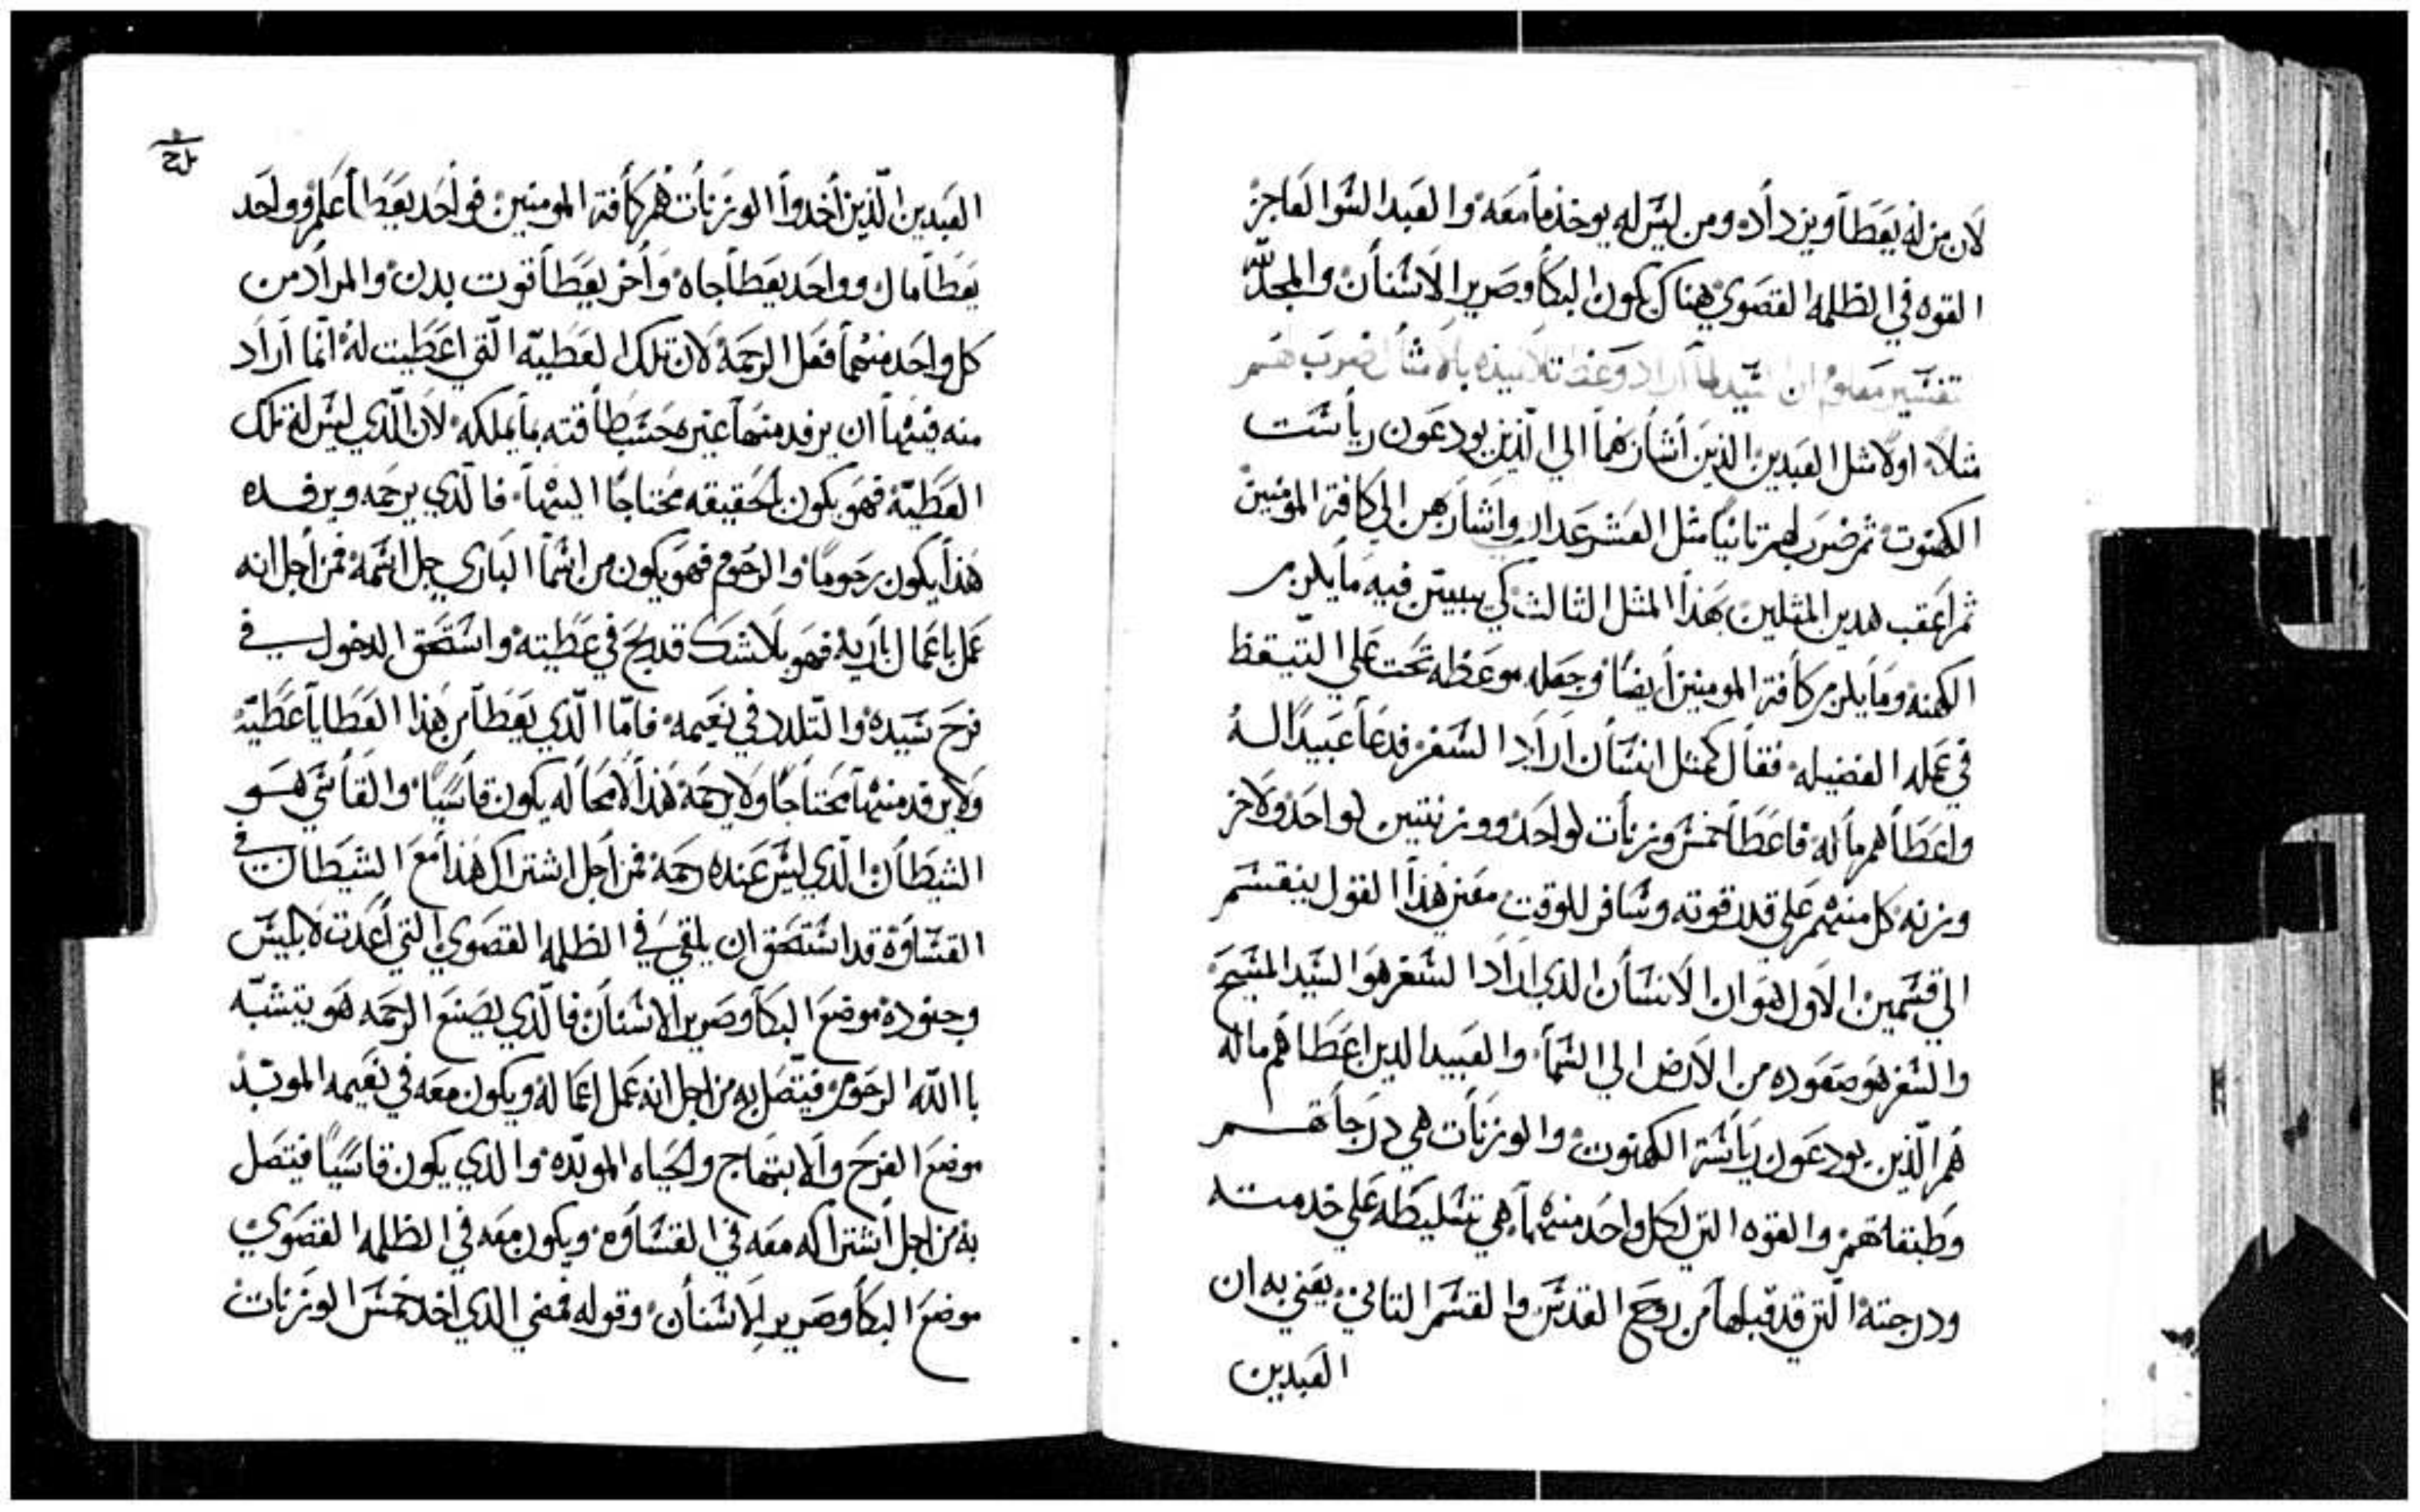 لان من له يعطا ويزداده ومن ليس له يوخذ ما معه والعبد السوا العاجز
القوه في الظلمه القصوي هناك يكون البكا وصرير الاسنان والمجد لله
تفسير معلوم ان السيد لما اراد وعظ تلاميذه بالامثال ضرب لهم
مثلاً اولا مثل العبدين الذين أشار بهما الي الذين يودعون رياست
الكهنوت ثم ضرب لهم تانيا مثل العشر عدارى واشار بهن الي كافة المومنين
ثم اعقب هدين المثلين بهذا المثل الثالث كي يبين فيه ما يلزم
الكهنه وما يلزم كافة المومنين أيضاً وجعله موعظه تحت علي التيقظ
في عمله الفضيله فقال كمثل انسان اراد السفر فدعا عبيداً له
واعطاهم ماله فاعطا خمس وزنات لواحد ووزنتين لواحد ولاخر
وزنه كل منهم علي قدر قوته وسافر للوقت معني هذا القول ينقسم
الي قسمين الاول هو ان الانسان الدي اراد السفر هو السيد المسيح
والسفر هو صعوده من الارض الي السما والعبيد الدين اعطاهم ماله
هم الذين يودعون رياسة الكهنوت والوزنات هي درجاتهم
وطبقاتهم والقوه التي لكل واحد منهما هي تسليطه علي خدمته
ودرجته التي قد قبلها من روح القدس والقسم التاني يعني به ان
العبدين
العبدين الذين أخدوا الوزنات هم كافة المومنين فواحد يعطا علم وواحد
يعطا مال وواحد يعطا جاه وأخر يعطا قوت بدن والمراد من
كل واحد منهما فعل الرحمة لان تلك العطيه التي اعطيت له انما اراد
منه فيها ان يرفد منها غير محسب طاقته بما يملكه لان الذي ليس له تلك
العطيه فهو يكون بالحقيقه محتاجا اليها فالذي يرحمه ويرفده
هذا يكون رحوما والرحوم فهو يكون من اسما الباري جل اسمه فمن أجل انه
عمل باعمال باريه فهو بلا شك قد ربح في عطيته واستحق الدخول في
فرح سيده والتلدد في نعيمه فاما الذي يعطا من هذا العطايا عطيه
ولا يرفد منها محتاجا ولا يرحمه هذا لا محاله يكون قاسياً والقاسي هو
الشيطان الذي ليس عنده رحمه فمن أجل اشتراك هذا مع الشيطان في
القساوة قد استحق ان يلقي في الظلمه القصوي التي أعدت لابليس
وجنوده موضع البكا وصرير الاسنان فالذي يصنع الرحمه هو يتشبه
باالله الرحوم فيتصل به من اجل انه عمل اعماله ويكون معه في نعيمه الموبد
موضع الفرح والابتهاج والحياه الموبده والذي يكون قاسياً فيتصل
به من اجل اشتراكه معه في القساوه ويكون معه في الظلمه القصوي
موضع البكا وصرير الاسنان وقوله فمضي الدي اخد خمس الوزنات